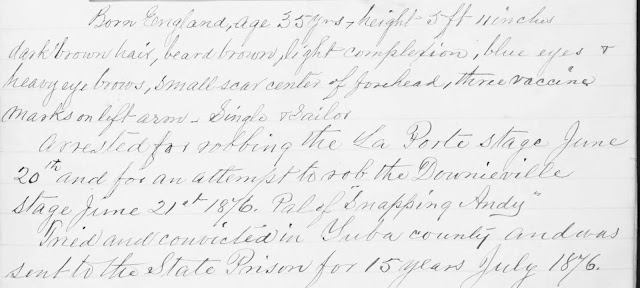 Born England, age 35 yrs, height 5 ft 11 inches
dark brown hair, beard brown, light complexion, blue eyes &
heavy eye brows, small scar center of forehead, three vaccine
marks on left arm - Single & Sailor
Arrested for robbing the La Porte stage June
20th and for an attempt to rob the Downieville
stage June 21st 1876. Pal of "Snapping Andy"
Tried and convicted in Yuba county and was
sent to the State Prison for 15 years July 1876.